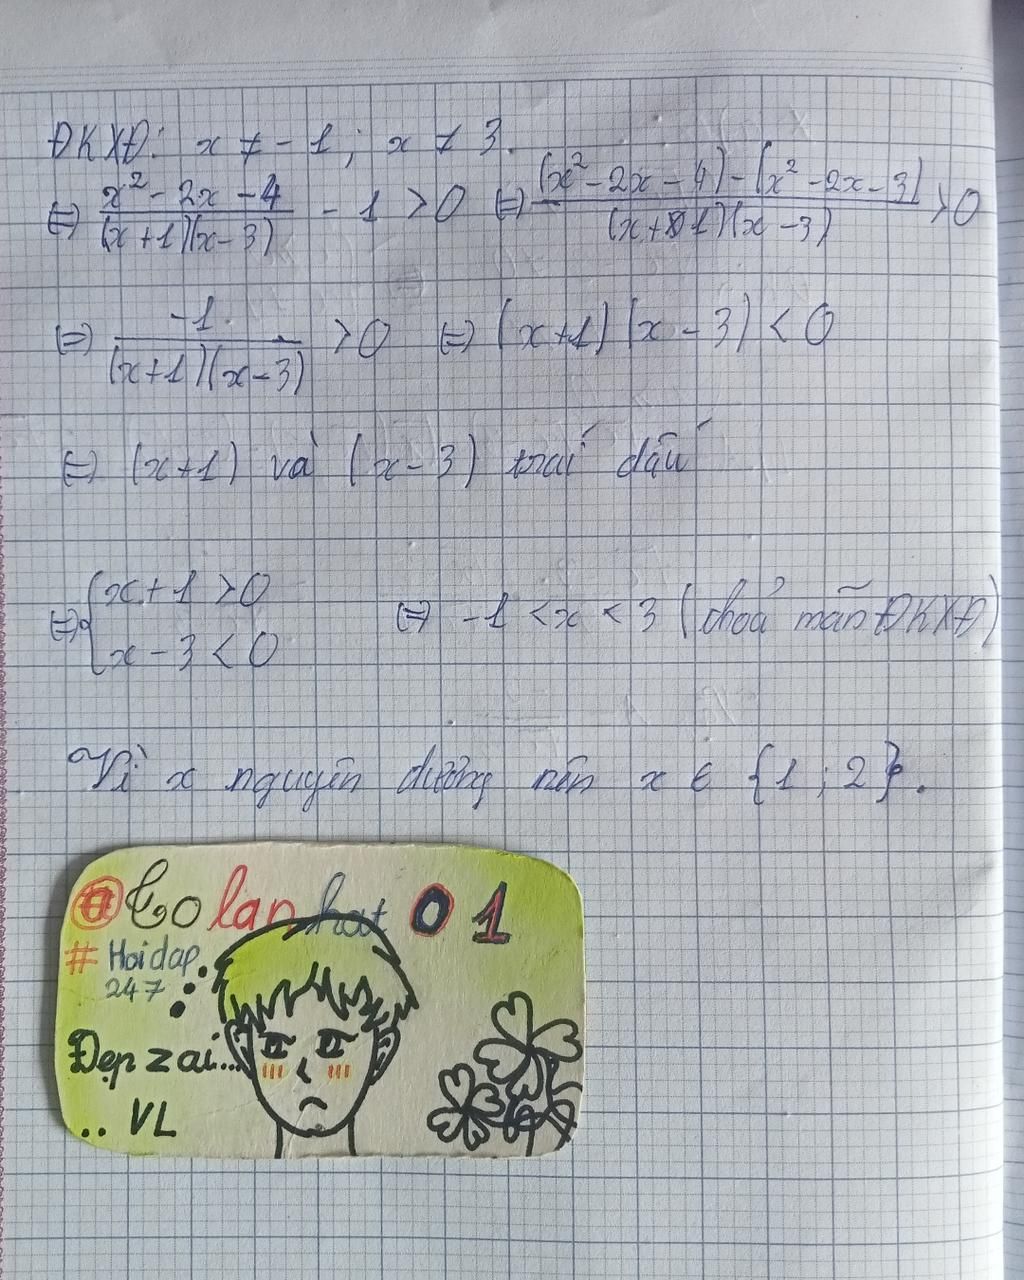 ĐKXĐ: x ≠ -1 ; x ≠ 3.
⇔ (x² - 2x - 4)/((x+1)(x-3)) - 1 > 0 ⇔ ((x² - 2x - 4) - (x² - 2x - 3))/((x+1)(x-3)) > 0
⇔ -1/((x+1)(x-3)) > 0 ⇔ (x+1)(x-3) < 0
⇔ (x+1) và (x-3) trái dấu
⇔ { x+1 > 0
x - 3 < 0 ⇔ -1 < x < 3 (thoả mãn ĐKXĐ)
Vì x nguyên dương nên x ∈ {1 ; 2}.
@ Co lan hat 01
# Hoidap
247
Đẹp zai...
.. VL